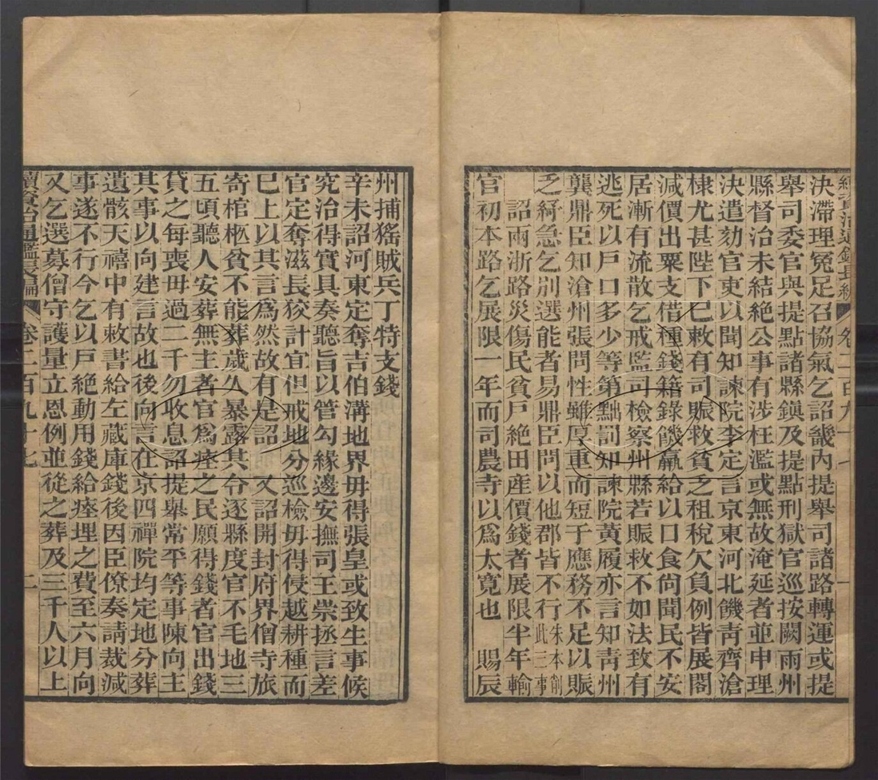 續資治通鑑長編 卷二百九十七 一
決滯理冤足召協氣乞詔畿內提舉司諸路轉運或提
舉司委官與提點諸縣鎮及提點刑獄官巡按闕雨州
縣督治未結絕公事有涉枉濫或無故淹延者並申理
決遣劾官吏以聞知諫院李定言京東河北饑靑齊滄
棣尤甚陛下巳敕有司賑救貧乏租稅欠負例皆展閣
減價出粟支借種錢籍錄饑羸給以口食尙聞民不安
居漸有流散乞戒監司檢察州縣若賑救不如法致有
逃死以戶口多少等第黜罰知諫院黃履亦言知靑州
龔鼎臣知滄州張問性雖厚重而短于應務不足以賑
乏紓急乞別選能者易鼎臣問以他郡皆不行朱本創此三事
詔兩浙路災傷民貧戶絕田產價錢者展限半年輸
官初本路乞展限一年而司農寺以爲太寬也 賜辰
州捕猺賊兵丁特支錢
辛未詔河東定奪吉伯溝地界毋得張皇或致生事候
究治得實具奏聽旨以管勾緣邊安撫司王崇拯言差
官定奪滋長狡計宜但戒地分巡檢毋得侵越耕種而
巳上以其言爲然故有是詔 又詔開封府界僧寺旅
寄棺柩貧不能葬歲久暴露其令逐縣度官不毛地三
五頃聽人安葬無主者官爲瘞之民願得錢者官出錢
貸之每喪毋過二千勿收息詔提舉常平等事陳向主
其事以向建言故也後向言在京四禪院均定地分葬
遺骸天禧中有敕書給左藏庫錢後因臣僚奏請裁減
事遂不行今乞以戶絕動用錢給瘞埋之費至六月向
又乞選募僧守護量立恩例並從之葬及三千人以上
續資治通鑑長編 卷二百九十七 二